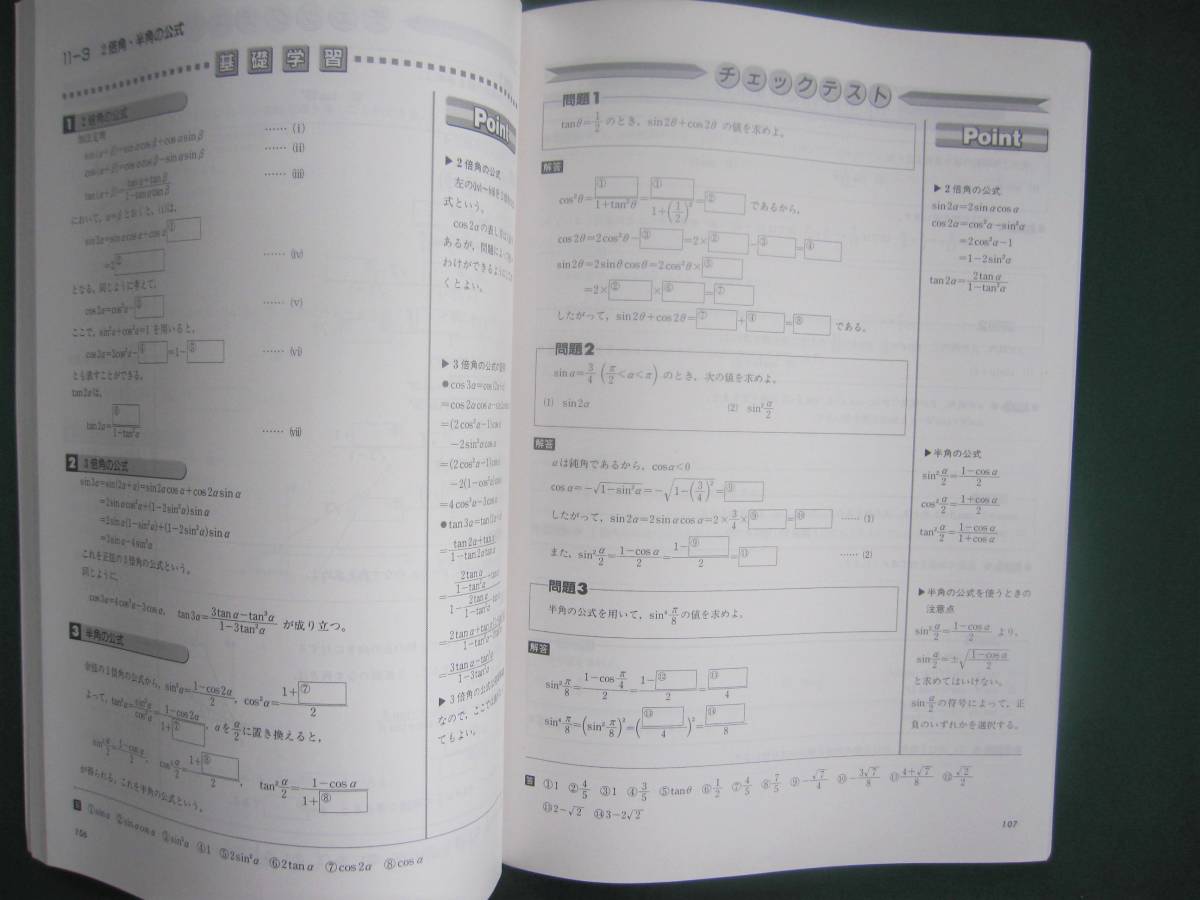 11-3 2倍角・半角の公式
基礎学習
1 2倍角の公式
加法定理
sin(α+β)=sinαcosβ+cosαsinβ …… (ⅰ)
cos(α+β)=cosαcosβ-sinαsinβ …… (ⅱ)
tan(α+β)=(tanα+tanβ)/(1-tanαtanβ) …… (ⅲ)
において，α=βとおくと，(ⅰ)は，
sin2α=sinαcosα+cosα①
=2② …… (ⅳ)
となる。同じように考えて，
cos2α=cos²α-③ …… (ⅴ)
ここで，sin²α+cos²α=1 を用いると，
cos2α=2cos²α-④=1-⑤ …… (ⅵ)
とも表すことができる。
tan2αは，
tan2α=⑥/(1-tan²α) …… (ⅶ)
2 3倍角の公式
sin3α=sin(2α+α)=sin2αcosα+cos2αsinα
=2sinαcos²α+(1-2sin²α)sinα
=2sinα(1-sin²α)+(1-2sin²α)sinα
=3sinα-4sin³α
これを正弦の3倍角の公式という。
同じように，
cos3α=4cos³α-3cosα， tan3α=(3tanα-tan³α)/(1-3tan²α) が成り立つ。
3 半角の公式
余弦の2倍角の公式から，sin²α=(1-cos2α)/2，cos²α=(1+⑦)/2
よって，tan²α=sin²α/cos²α=(1-cos2α)/(1+⑦)，αをα/2に置き換えると，
sin²α/2=(1-cosα)/2， cos²α/2=(1+⑧)/2， tan²α/2=(1-cosα)/(1+⑧)
が得られる。これを半角の公式という。
答 ①sinα ②sinαcosα ③sin²α ④1 ⑤2sin²α ⑥2tanα ⑦cos2α ⑧cosα
106
Point
▶2倍角の公式
式という。
cos2αの表し
あるが，問題によって
わけができるように
くとよい。
▶3倍角の公式の
●cos3α=cos(2α+α)
=cos2αcosα-sin2α
=(2cos²α-1)cosα
-2sin²αcosα
=(2cos²α-1)cosα
-2(1-cos²α)cosα
=4cos³α-3cosα
●tan3α=tan(2α+
=(tan2α+tanα)/(1-tan2αtanα)
▶3倍角の公式
なので，ここでは
てもよい。
チェックテスト
問題1
tanθ=1/2 のとき，sin2θ+cos2θ の値を求めよ。
解答
cos²θ=①/(1+tan²θ)=①/(1+(1/2)²)=② であるから，
cos2θ=2cos²θ-③=2×②-③=④
sin2θ=2sinθcosθ=2cos²θ×⑤
=2×②×⑥=⑦
したがって，sin2θ+cos2θ=⑦+④=⑧ である。
問題2
sinα=3/4 (π/2<α<π) のとき，次の値を求めよ。
(1) sin2α (2) sin²α/2
解答
αは鈍角であるから，cosα<0
cosα=-√(1-sin²α)=-√(1-(3/4)²)=⑨
したがって，sin2α=2sinαcosα=2×3/4×⑨=⑩ ……(1)
また，sin²α/2=(1-cosα)/2=(1-⑨)/2=⑪ ……(2)
問題3
半角の公式を用いて，sin⁴π/8の値を求めよ。
解答
sin²π/8=(1-cosπ/4)/2=(1-⑫)/2=⑬/4
sin⁴π/8=(sin²π/8)²=(⑬/4)²=⑭/8
答 ①1 ②4/5 ③1 ④3/5 ⑤tanθ ⑥1/2 ⑦4/5 ⑧7/5 ⑨-√7/4 ⑩-3√7/8 ⑪(4+√7)/8 ⑫√2/2
⑬2-√2 ⑭3-2√2
107
Point
▶2倍角の公式
sin2α=2sinαcosα
cos2α=cos²α-sin²α
=2cos²α-1
=1-2sin²α
tan2α=2tanα/(1-tan²α)
▶半角の公式
sin²α/2=(1-cosα)/2
cos²α/2=(1+cosα)/2
tan²α/2=(1-cosα)/(1+cosα)
▶半角の公式を使うときの
注意点
sin²α/2=(1-cosα)/2 より，
sinα/2=±√((1-cosα)/2)
と求めてはいけない。
sinα/2の符号によって，正
負のいずれかを選択する。